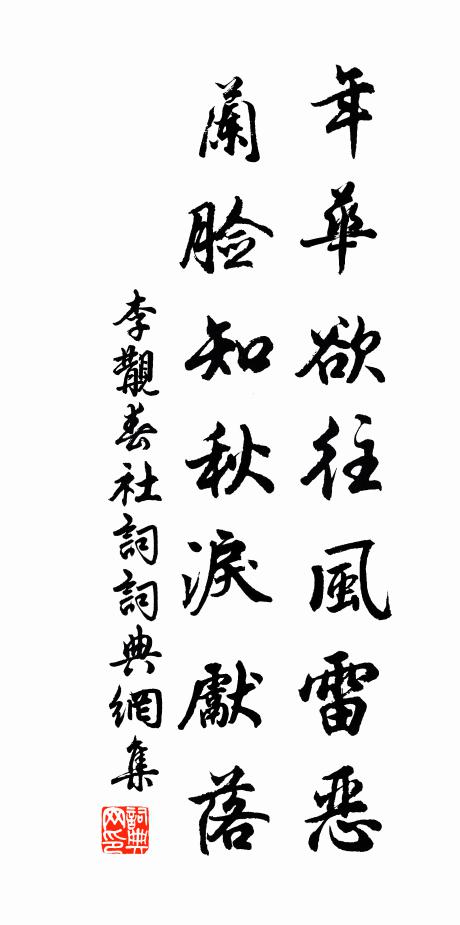 年華欲往風雷惡
蘭臉知秋淚獻落
李觀春社詞詞典網集
詞典網印